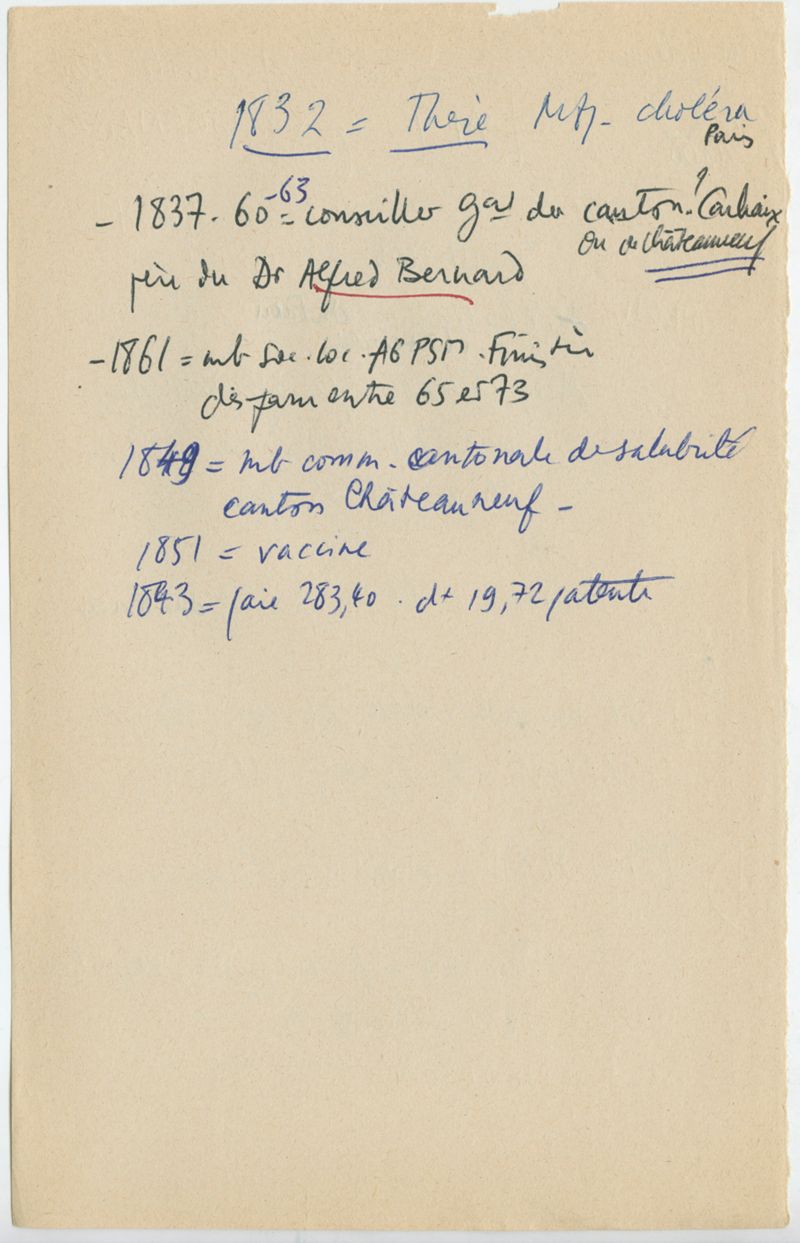 1832 = Thèse choléra
Paris
- 1837. 60-63 = conseiller gal du canton. ? Carhaix
ou de Châteauneuf
père du Dr Alfred Bernard
- 1861 = mb soc. loc. AGPSM. Finistère
disparu entre 65 et 73
1849 = mb comm. cantonale de salubrité
canton Châteauneuf -
1851 = vaccine
1843 = paie 283,40 . dt 19,72 patente